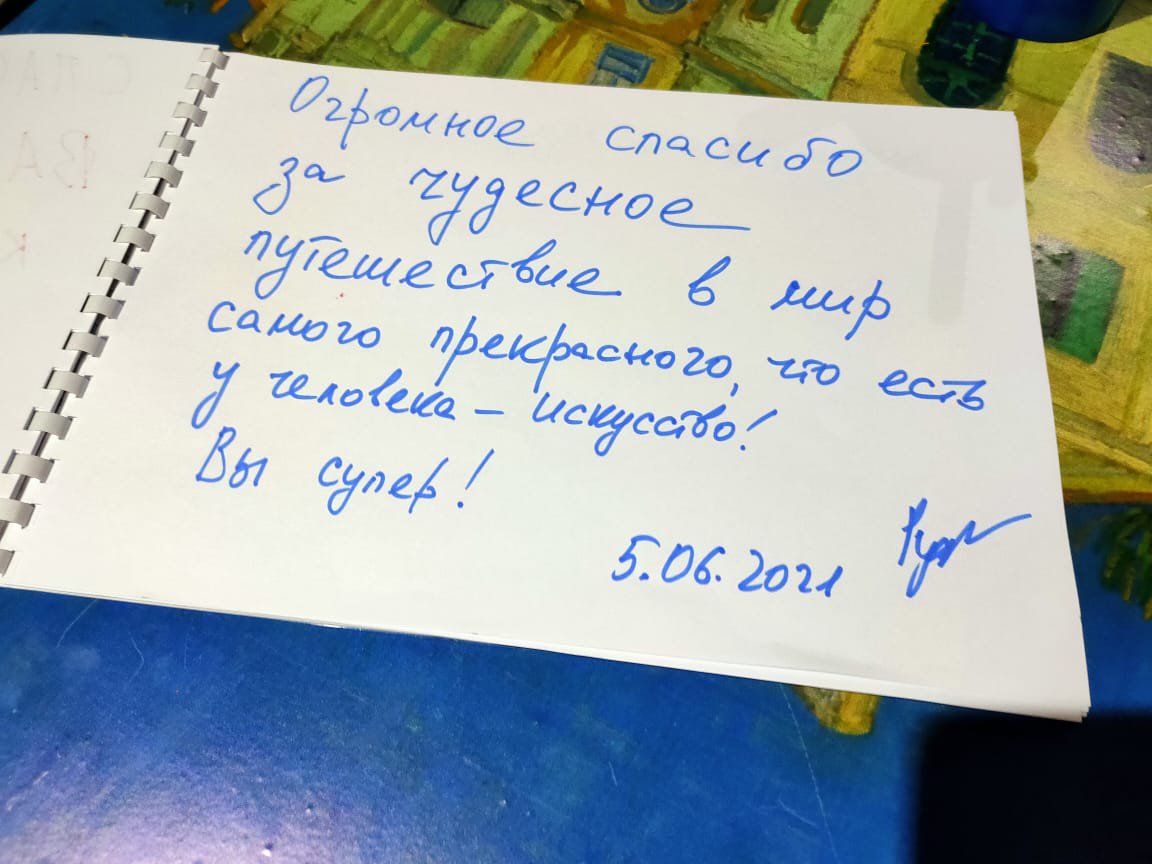 Огромное спасибо
за чудесное
путешествие в мир
самого прекрасного, что есть
у человека – искусство!
Вы супер!
5.06.2021